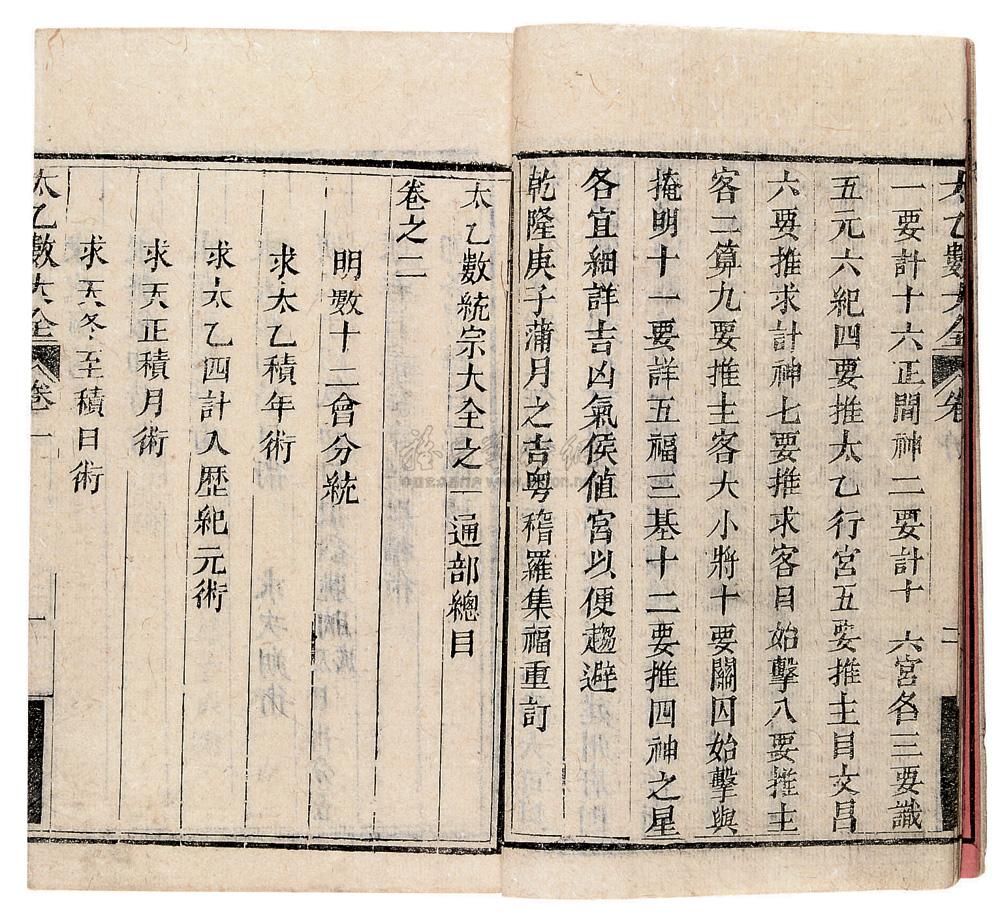 太乙數大全 卷 二
一要計十六正間神二要計十 六宮各三要識
五元六紀四要推太乙行宮五要推主目文昌
六要推求計神七要推求客目始擊八要推主
客二算九要推主客大小將十要關囚始擊與
掩明十一要詳五福三基十二要推四神之星
各宜細詳吉凶氣侯值宮以便趨避
乾隆庚子蒲月之吉粤稽羅集福重訂
太乙數統宗大全之一通部總目
卷之二
明數十二會分統
求太乙積年術
求太乙四計入歷紀元術
求天正積月術
求天冬至積日術
太乙數大全 卷一 一